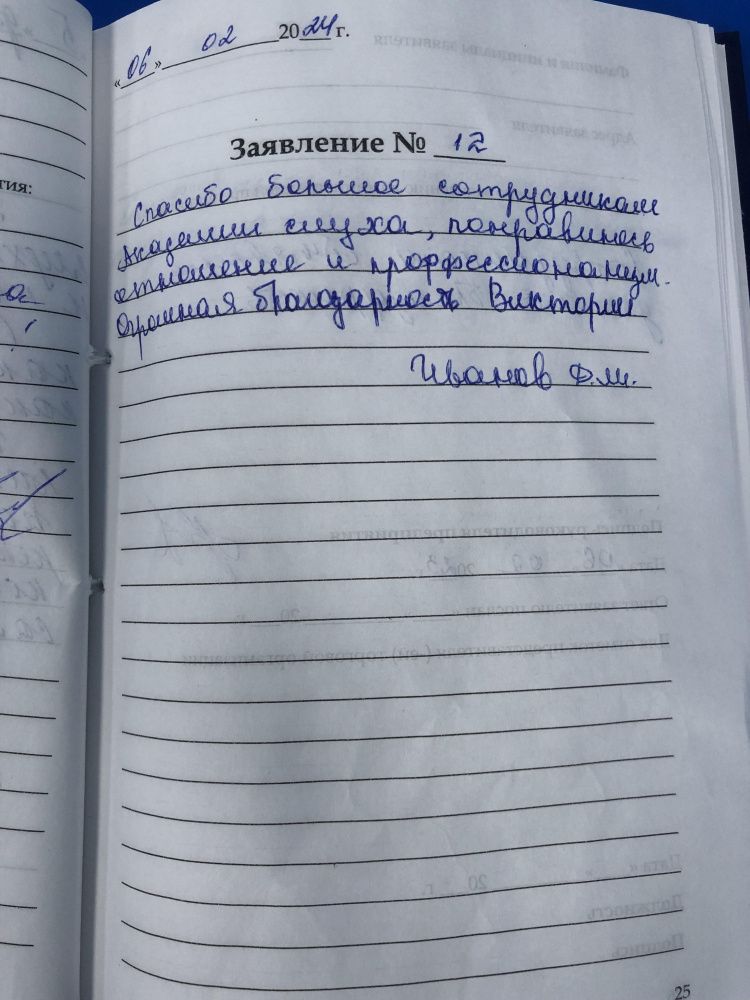 «06» 02 2024 г.
Заявление № 12
Спасибо большое сотрудникам
Академии слуха, понравилось
отношение и профессионализм.
Огромная благодарность Виктории
Иванов Ф.М.
тия:
25